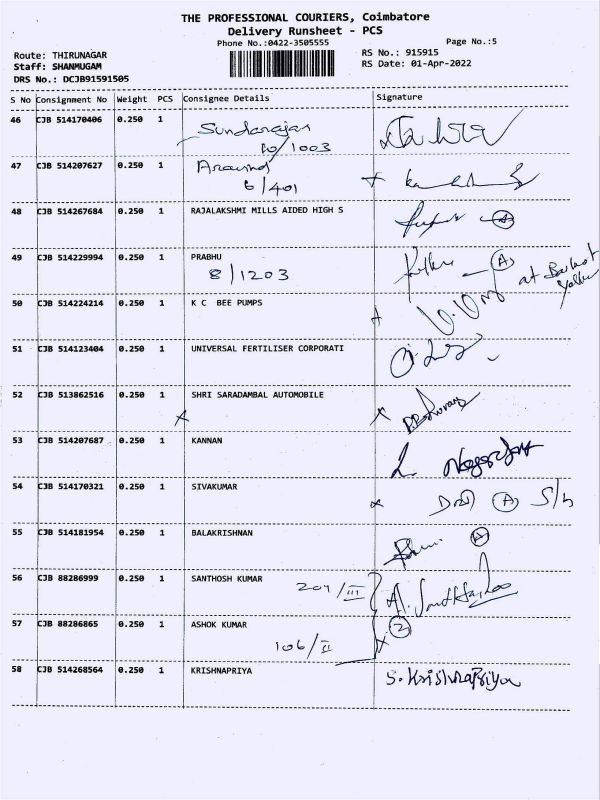 THE PROFESSIONAL COURIERS, Coimbatore
Delivery Runsheet - PCS
Phone No.:0422-3505555
Page No.:5
Route: THIRUNAGAR
RS No.: 915915
Staff: SHANMUGAM
RS Date: 01-Apr-2022
DRS No.: DCJB91591505
S No Consignment No Weight PCS Consignee Details Signature
46 CJB 514170406 0.250 1 Sundarajan
10/1003
47 CJB 514207627 0.250 1 Aravind
6/401
48 CJB 514267684 0.250 1 RAJALAKSHMI MILLS AIDED HIGH S A
49 CJB 514229994 0.250 1 PRABHU A
8/1203 at
50 CJB 514224214 0.250 1 K C BEE PUMPS
51 CJB 514123404 0.250 1 UNIVERSAL FERTILISER CORPORATI
52 CJB 513862516 0.250 1 SHRI SARADAMBAL AUTOMOBILE
53 CJB 514207687 0.250 1 KANNAN
54 CJB 514170321 0.250 1 SIVAKUMAR A
55 CJB 514181954 0.250 1 BALAKRISHNAN A
56 CJB 88286999 0.250 1 SANTHOSH KUMAR 201/III
57 CJB 88286865 0.250 1 ASHOK KUMAR 2
106/II
58 CJB 514268564 0.250 1 KRISHNAPRIYA S. Krishnapriya